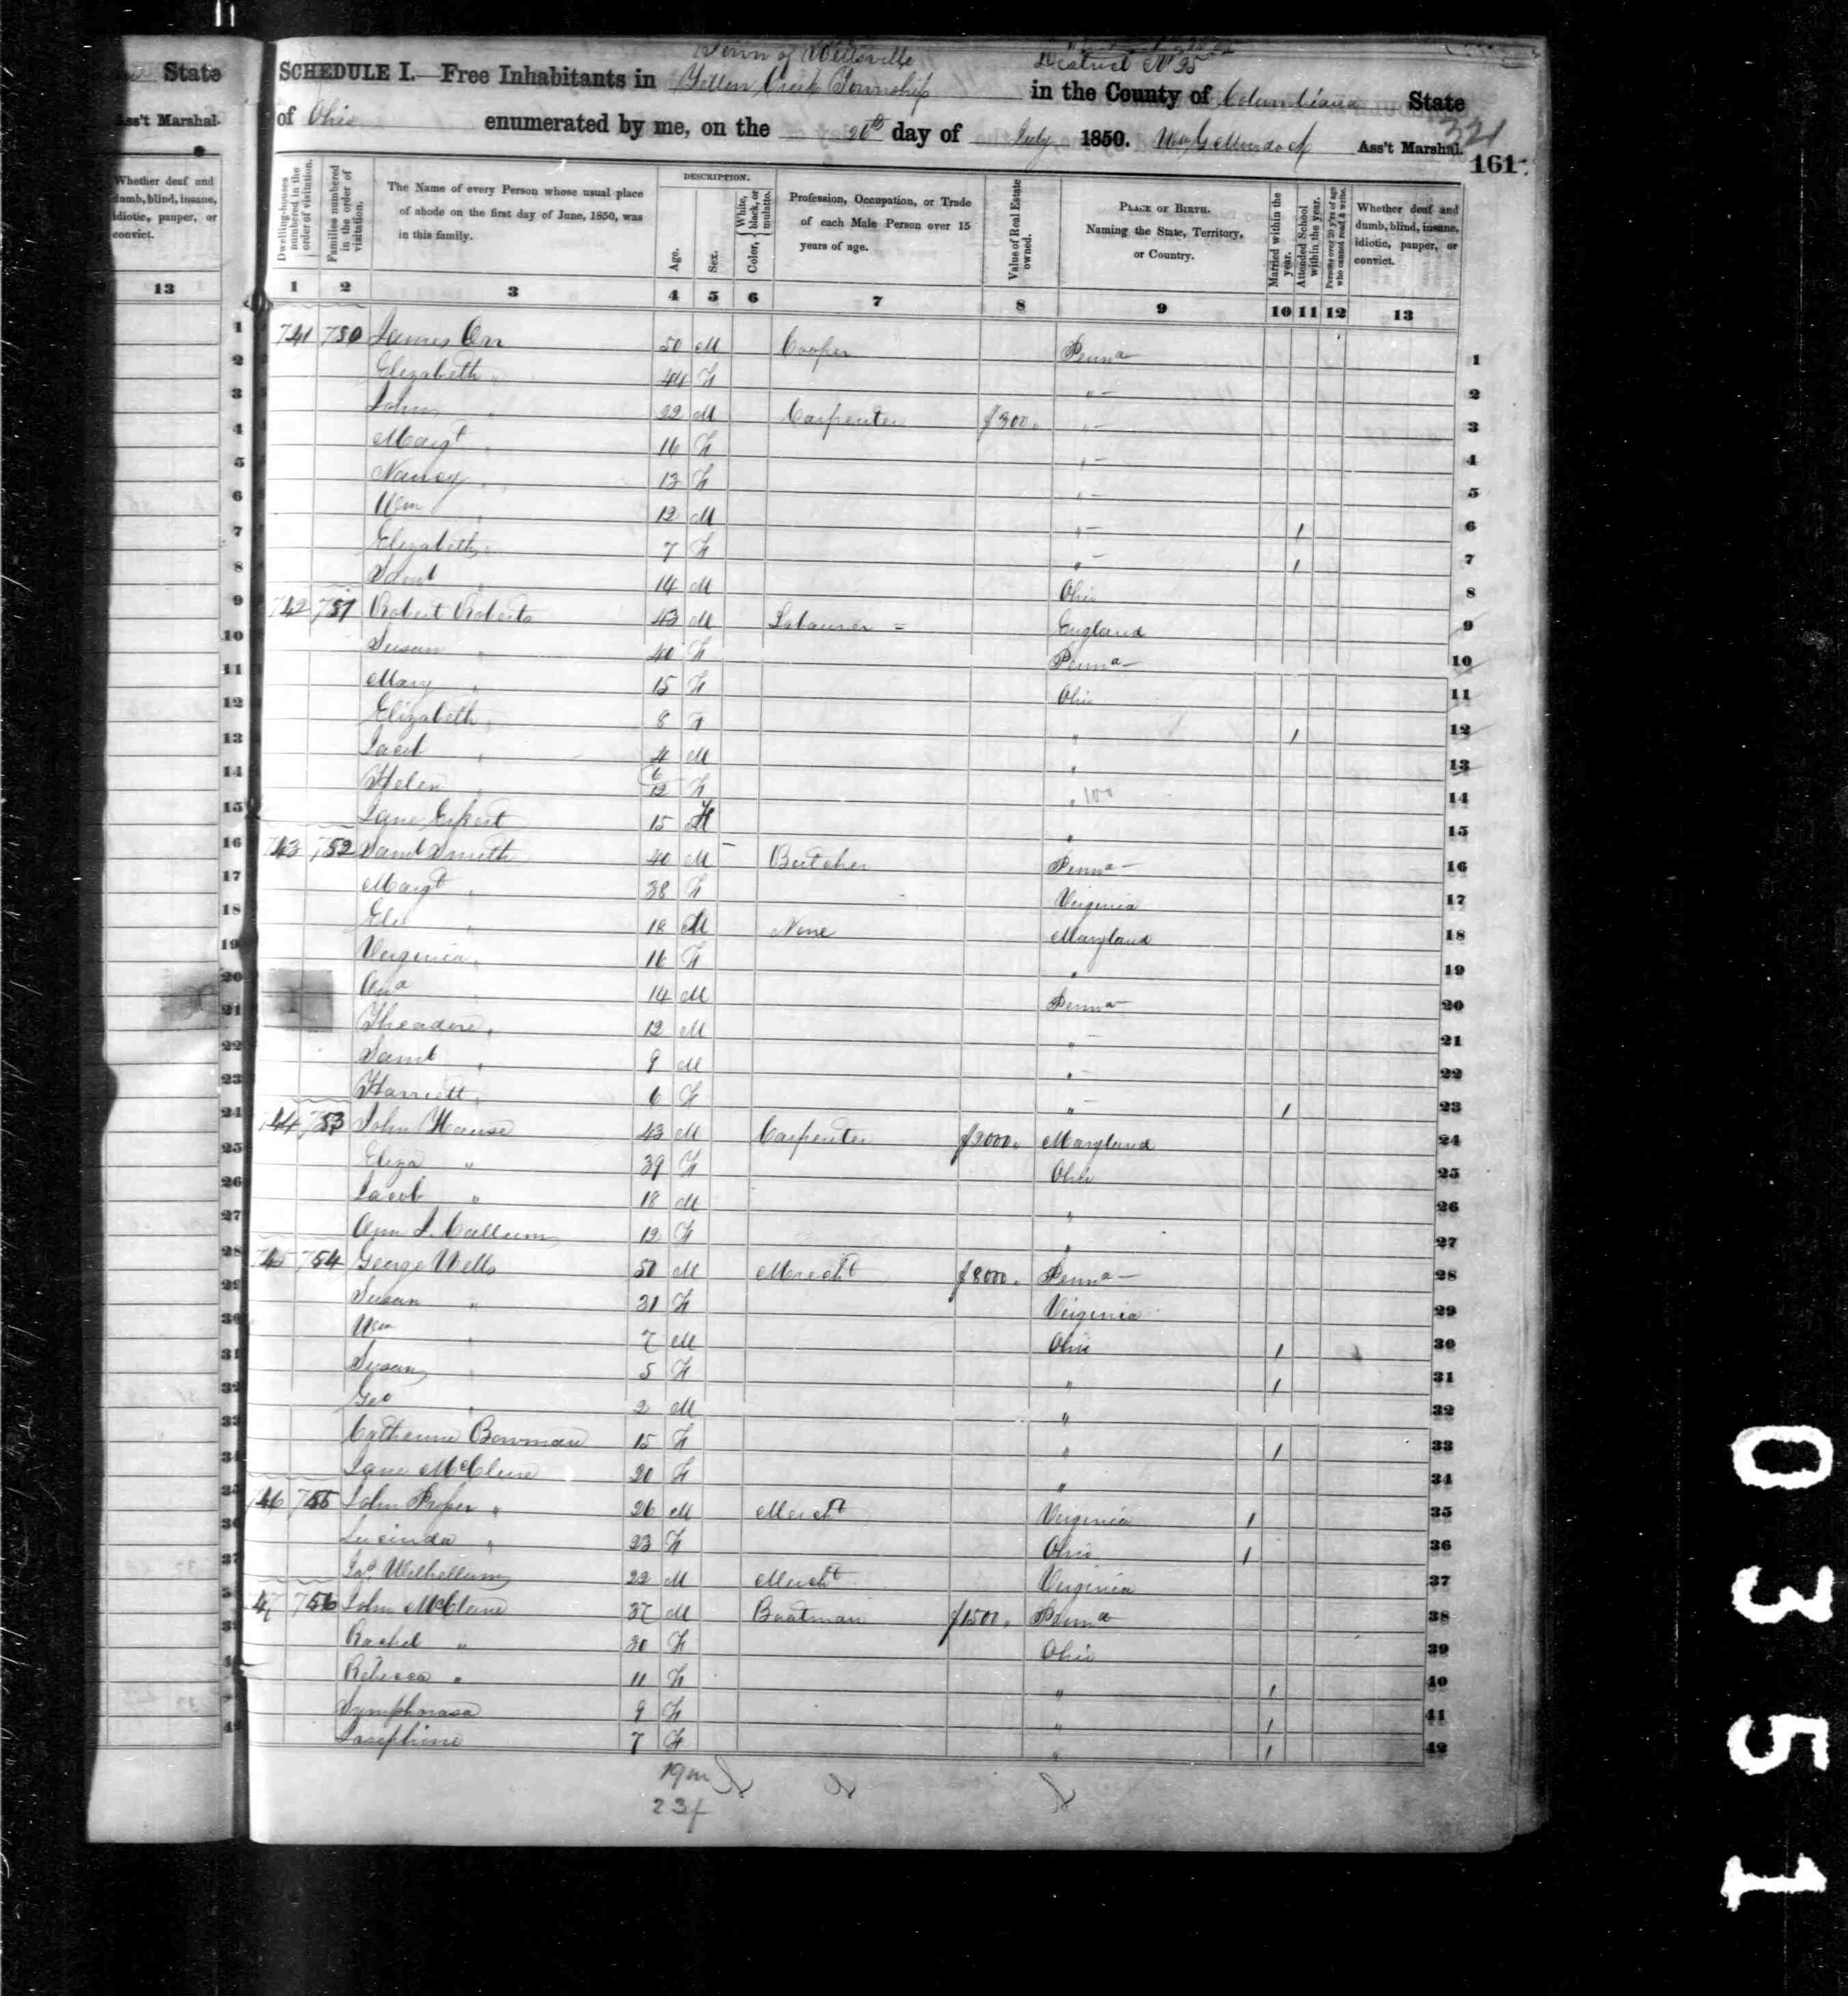 State
Ass't Marshal.
Whether deaf and
dumb, blind, insane,
idiotic, pauper, or
convict.
13
Town of Wellsville
District No 35
SCHEDULE I.—Free Inhabitants in Yellow Creek Township in the County of Columbiana State
of Ohio enumerated by me, on the 26th day of July 1850. Wm G Ass't Marshal.
321
161
Dwelling-houses numbered in the order of visitation.
Families numbered in the order of visitation.
The Name of every Person whose usual place of abode on the first day of June, 1850, was in this family.
DESCRIPTION.
Age.
Sex.
Color, White, black, or mulatto.
Profession, Occupation, or Trade of each Male Person over 15 years of age.
Value of Real Estate owned.
PLACE OF BIRTH. Naming the State, Territory, or Country.
Married within the year.
Attended School within the year.
Persons over 20 y'rs of age who cannot read & write.
Whether deaf and dumb, blind, insane, idiotic, pauper, or convict.
1 2 3 4 5 6 7 8 9 10 11 12 13
1 741 750 James Orr 50 M Cooper Penna 1
2 Elizabeth " 44 F " 2
3 John " 22 M Carpenter $300. " 3
4 Margt " 16 F " 4
5 Nancy " 13 F " 5
6 Wm " 12 M " 1 6
7 Elizabeth " 7 F " 1 7
8 Saml " 14 M Ohio 8
9 742 751 Robert Roberts 43 M Labourer = England 9
10 Susan " 40 F Penna 10
11 Mary " 15 F Ohio 11
12 Elizabeth " 8 F " 1 12
13 Jacob " 4 M " 13
14 Helen " 6/12 F " 100 14
15 Jane 15 F " 15
16 743 752 Saml Smith 40 M Butcher Penna 16
17 Margt " 38 F Virginia 17
18 Eli " 18 M None Maryland 18
19 Virginia " 16 F " 19
20 14 M Penna 20
21 Theadore " 12 M " 21
22 Saml " 9 M " 22
23 Harriett " 6 F " 1 23
24 744 753 John Hause 43 M Carpenter $2000. Maryland 24
25 Eliza " 39 F Ohio 25
26 Jacob " 18 M " 26
27 Ann J. Callum 12 F " 27
28 745 754 George Wells 50 M Mercht $8000. Penna 28
29 Susan " 31 F Virginia 29
30 Wm " 7 M Ohio 1 30
31 Susan " 5 F " 1 31
32 Geo " 2 M " 32
33 Catherine Bowman 15 F " 1 33
34 Jane McClure 20 F " 34
35 746 755 John " 26 M Mercht Virginia 1 35
36 Lucinda " 23 F Ohio 1 36
37 Jas Wilhellum 22 M Mercht Virginia 37
38 747 756 John McClure 37 M Boatman $1500. Penna 38
39 Rachel " 30 F Ohio 39
40 Rebecca " 11 F " 1 40
41 Symphorasa 9 F " 1 41
42 Josephine 7 F " 1 42
19m
23f
0351